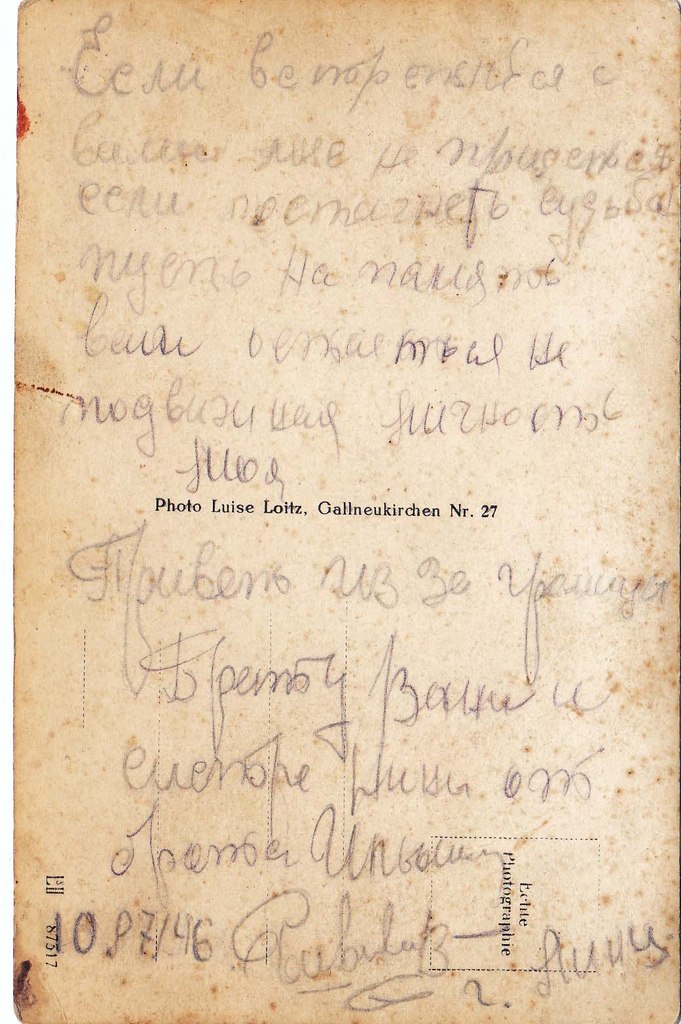 Если встретиться с
вами мне не придеться
если постигнеть судьба
пусть на память
вам остаеться не
подвижная личность
моя
Photo Luise Loitz, Gallneukirchen Nr. 27
Привет из за границы
Брату Вани и
сестре Нини от
брата
Echte
Photographie
87517
г. Линц